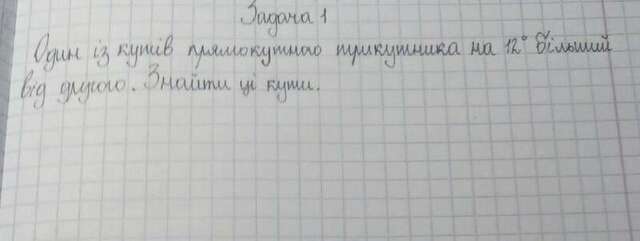 Задача 1
Один із кутів прямокутного трикутника на 12° більший
від другого. Знайти ці кути.